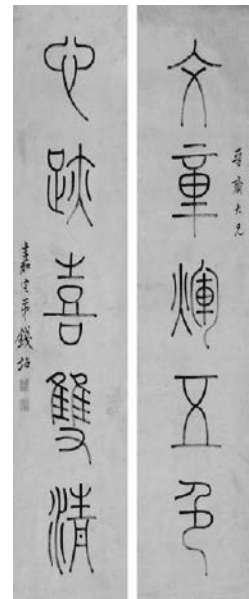 文章煇五色
齋大兄
心跡喜雙清
嘉定弟錢坫